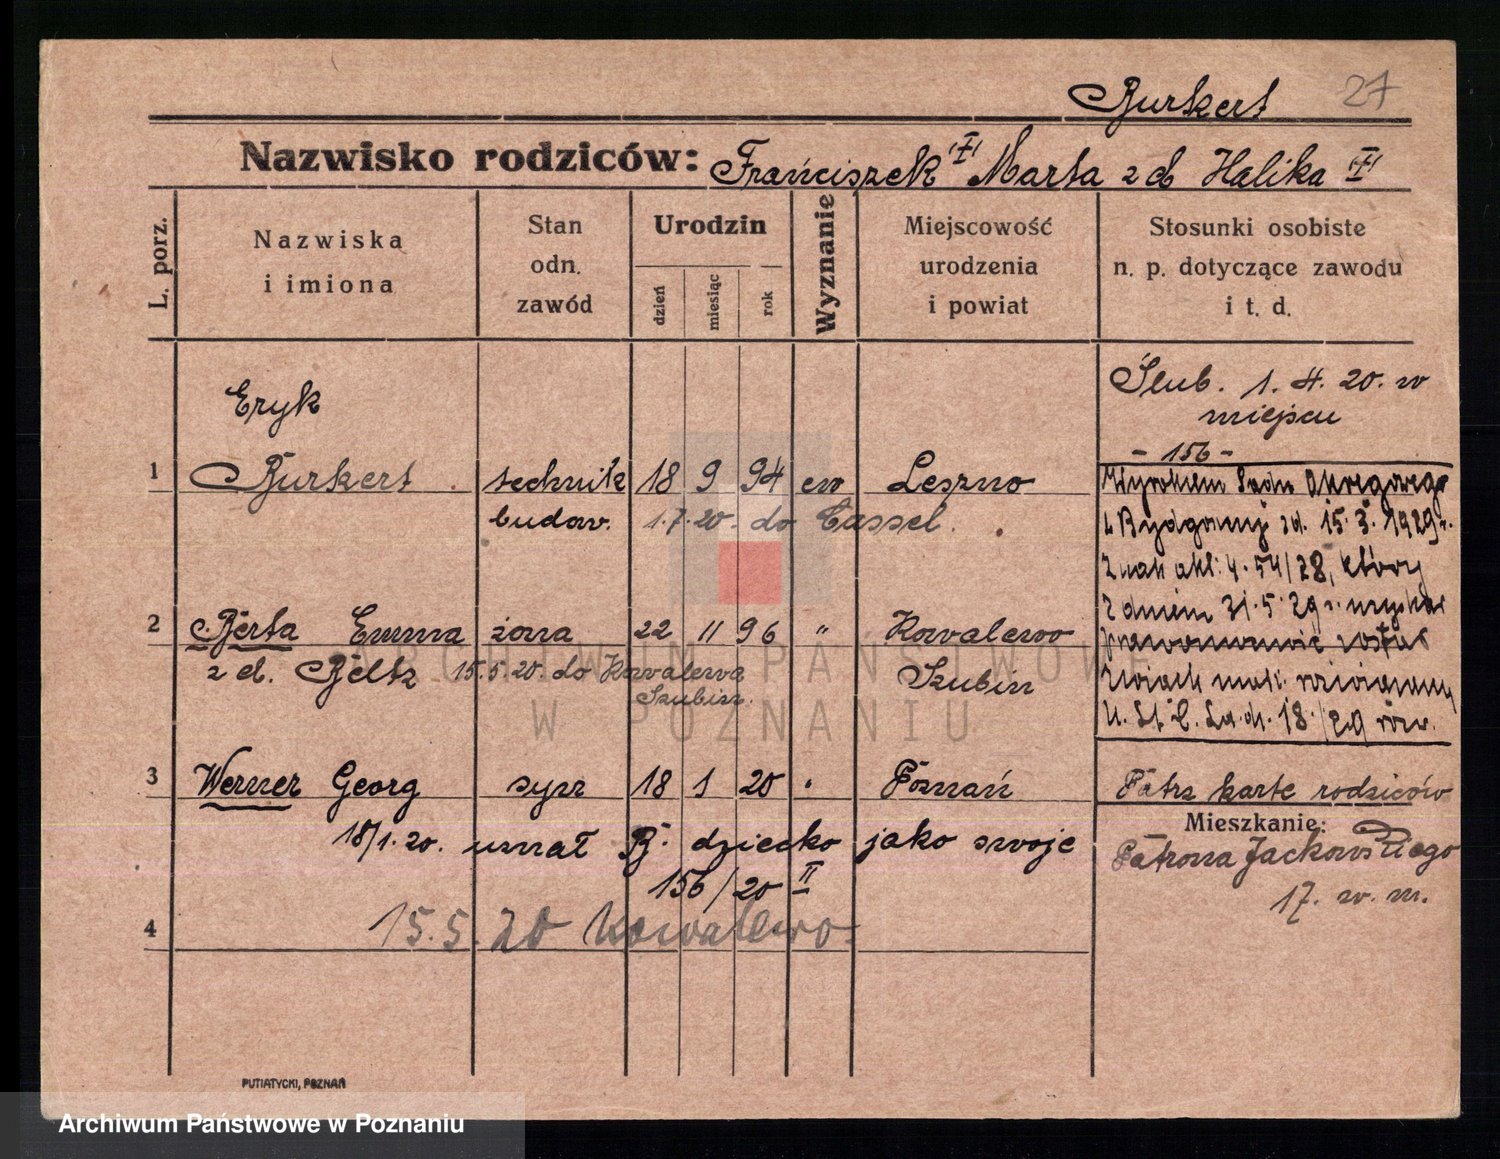 Burkert 27
Nazwisko rodziców: Franciszek "I" Marta z d Halika "I"
L. porz.
Nazwiska
i imiona
Stan
odn.
zawód
Urodzin
dzień
miesiąc
rok
Wyznanie
Miejscowość
urodzenia
i powiat
Stosunki osobiste
n. p. dotyczące zawodu
i t. d.
Eryk
1 Burkert technik 18 9 94 ew Leszno
budow. 1.7.20. do Cassel.
Ślub. 1. 4. 20. w
miejscu
- 156 -
Wyrokiem Sądu Okręgowego
w Bydgoszczy z d. 15.3.1929 r.
Znak akt: 4. 54/28, który
z dniem 31.5.29 r. uzyskał
prawomocność został
związek małż. rozwiązany
U. St. C. L. dz. 18/29 rozw.
2 Berta Emma żona 22 11 96 " Kowalewo
z d. Beltz 15.5.20. do Kowalewa Szubin
Szubin.
3 Werner Georg syn 18 1 20 " Poznań
18/1.20. uznał B. dziecko jako swoje
156/20 II
Patrz karte rodziców
Mieszkanie:
Patrona Jackowskiego
17. w. m.
4 15.5.20 Kowalewo
PUTIATYCKI, POZNAŃ
ARCHIWUM PAŃSTWOWE
W POZNANIU
Archiwum Państwowe w Poznaniu